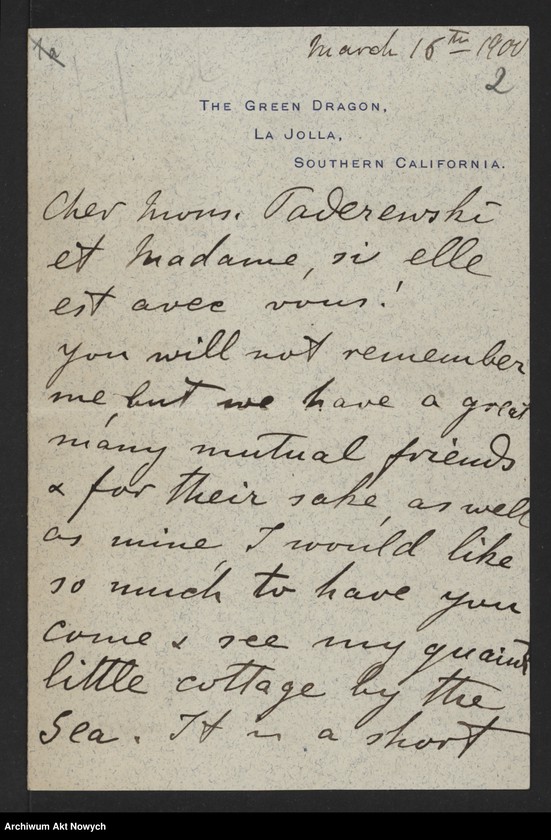 March 16th 1900
2
THE GREEN DRAGON,
LA JOLLA,
SOUTHERN CALIFORNIA.
Cher Mons. Paderewski
et Madame, si elle
est avec vous!
You will not remember
me, but we have a great
many mutual friends
& for their sake, as well
as mine, I would like
so much to have you
come & see my quaint
little cottage by the
Sea. It is a short
Archiwum Akt Nowych